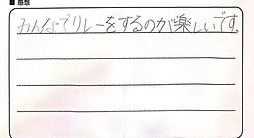 ■感想
みんなでリレーをするのが楽しいです。